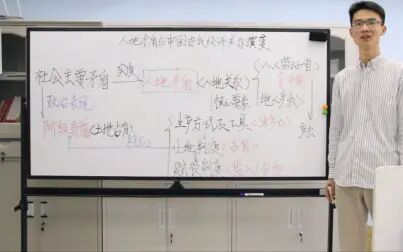 人地矛盾与中国古代经济关系演变
社会主要矛盾 实质 人地矛盾 人地关系 人(劳动者)
核心要素
政治表现 地(产出)
阶级矛盾(土地占有) 生产方式及工具(生产力) 产出
土地制度(占有)
赋役制度